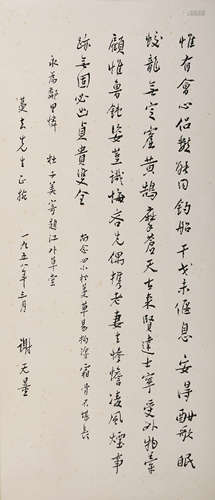 惟有會心侶數能同釣船干戈未偃息安得酣歌眠
蛟龍無定窟黃鵠摩蒼天古來賢達士寧受外物牽
顧惟魯鈍姿豈識悔吝先偶攜老妻去慘憺凌風煙事
跡無固必幽貞貴雙全尚念四小松蔓草易拘纏霜骨不堪長
永為鄰里憐 杜子美寄題江外草堂
先生正 一九五八年三月
謝无量